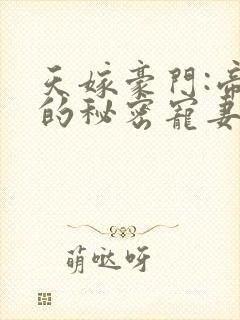 天嫁豪門:帝
的秘密寵妻
萌哒呀